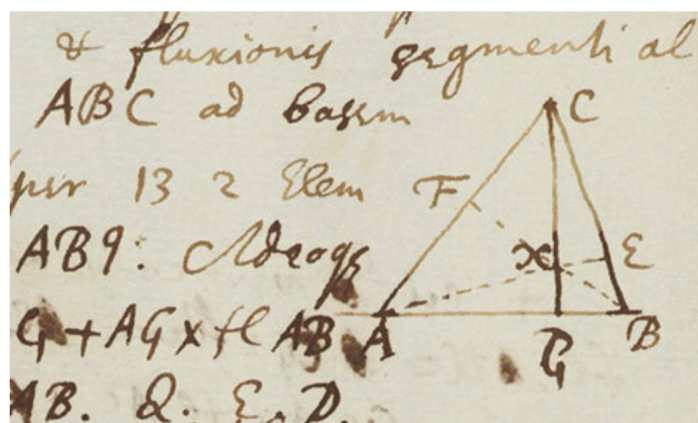 & fluxionis segmenti al
ABC ad basem
per 13 2 Elem
ABq. Adeoqz
G + AG x fl AB
AB. Q. E. D.
C
F
x
E
A
G
B